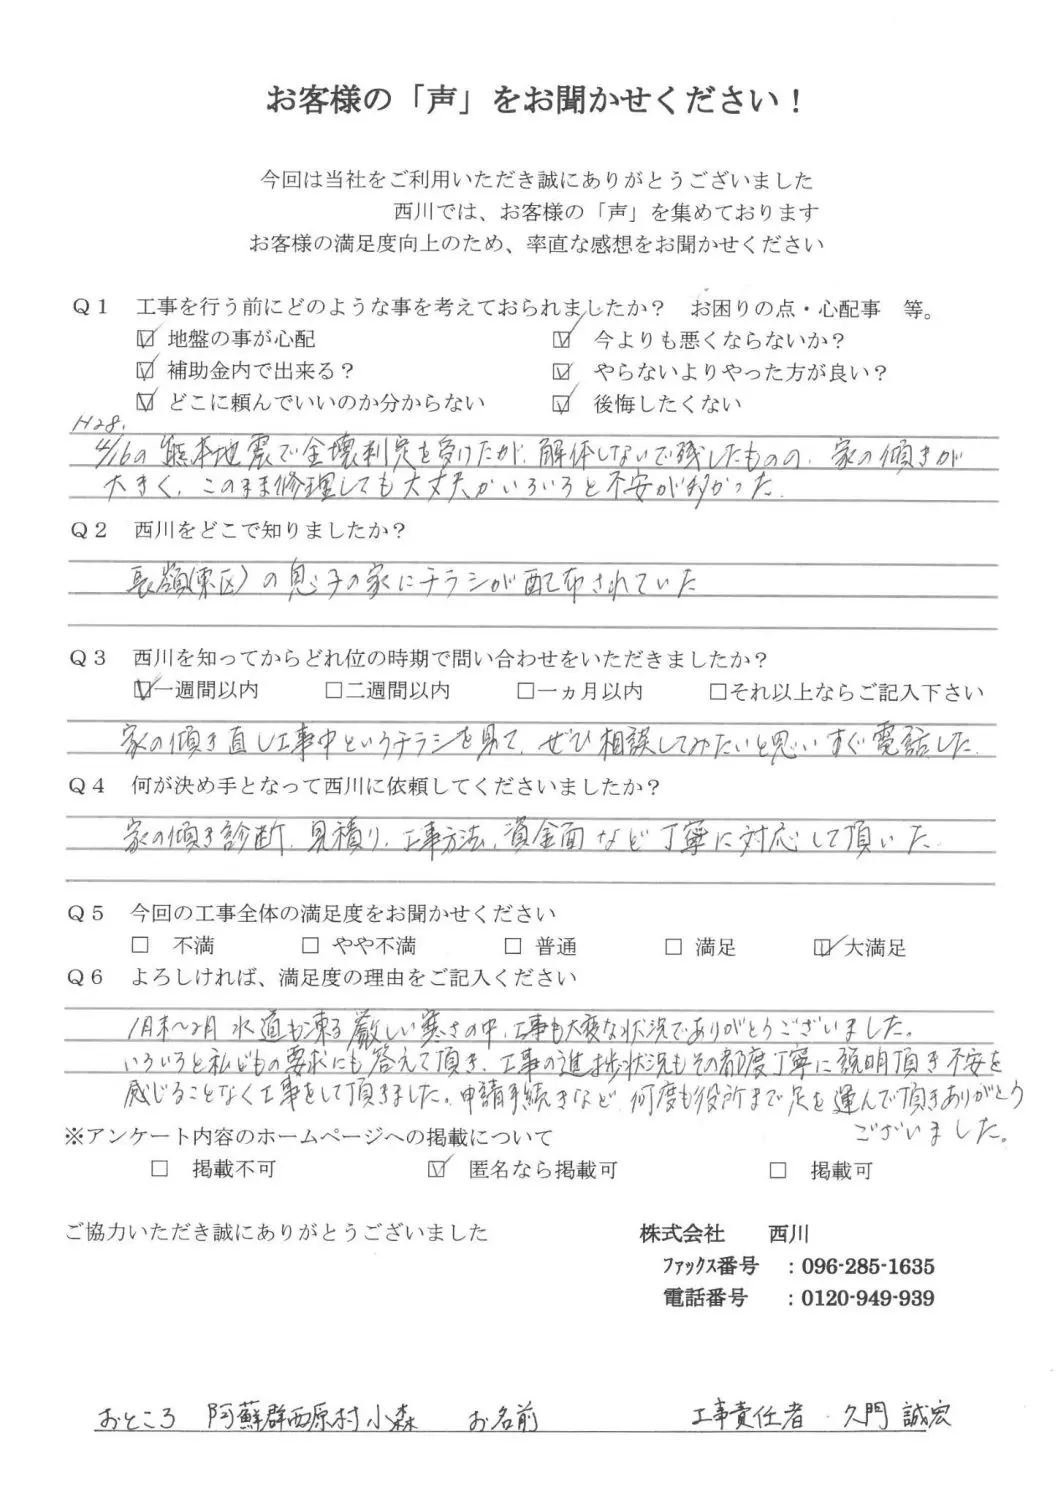 お客様の「声」をお聞かせください！
今回は当社をご利用いただき誠にありがとうございました
西川では、お客様の「声」を集めております
お客様の満足度向上のため、率直な感想をお聞かせください
Ｑ１　工事を行う前にどのような事を考えておられましたか？　お困りの点・心配事　等。
☑ 地盤の事が心配　☑ 今よりも悪くならないか？
☑ 補助金内で出来る？　☑ やらないよりやった方が良い？
☑ どこに頼んでいいのか分からない　☑ 後悔したくない
H28.
4/16の熊本地震で全壊判定を受けたが、解体しないで残したものの、家の傾きが
大きく、このまま修理しても大丈夫かいろいろと不安が多かった。
Ｑ２　西川をどこで知りましたか？
長嶺(東区)の息子の家にチラシが配布されていた
Ｑ３　西川を知ってからどれ位の時期で問い合わせをいただきましたか？
☑一週間以内　□二週間以内　□一ヵ月以内　□それ以上ならご記入下さい
家の傾き直し工事中というチラシを見て、ぜひ相談してみたいと思いすぐ電話した。
Ｑ４　何が決め手となって西川に依頼してくださいましたか？
家の傾き診断、見積り、工事方法、資金面など丁寧に対応して頂いた。
Ｑ５　今回の工事全体の満足度をお聞かせください
□ 不満　□ やや不満　□ 普通　□ 満足　☑大満足
Ｑ６　よろしければ、満足度の理由をご記入ください
1月末〜2月 水道も凍る厳しい寒さの中、工事も大変な状況でありがとうございました。
いろいろと私どもの要求にも答えて頂き、工事の進捗状況もその都度丁寧に説明頂き不安を
感じることなく工事をして頂きました。申請手続きなど、何度も役所まで足を運んで頂きありがとう
ございました。
※アンケート内容のホームページへの掲載について
□ 掲載不可　☑ 匿名なら掲載可　□ 掲載可
ご協力いただき誠にありがとうございました　株式会社　西川
ﾌｧｯｸｽ番号　：096-285-1635
電話番号　：0120-949-939
おところ　阿蘇群西原村小森　お名前　工事責任者　久門 誠宏